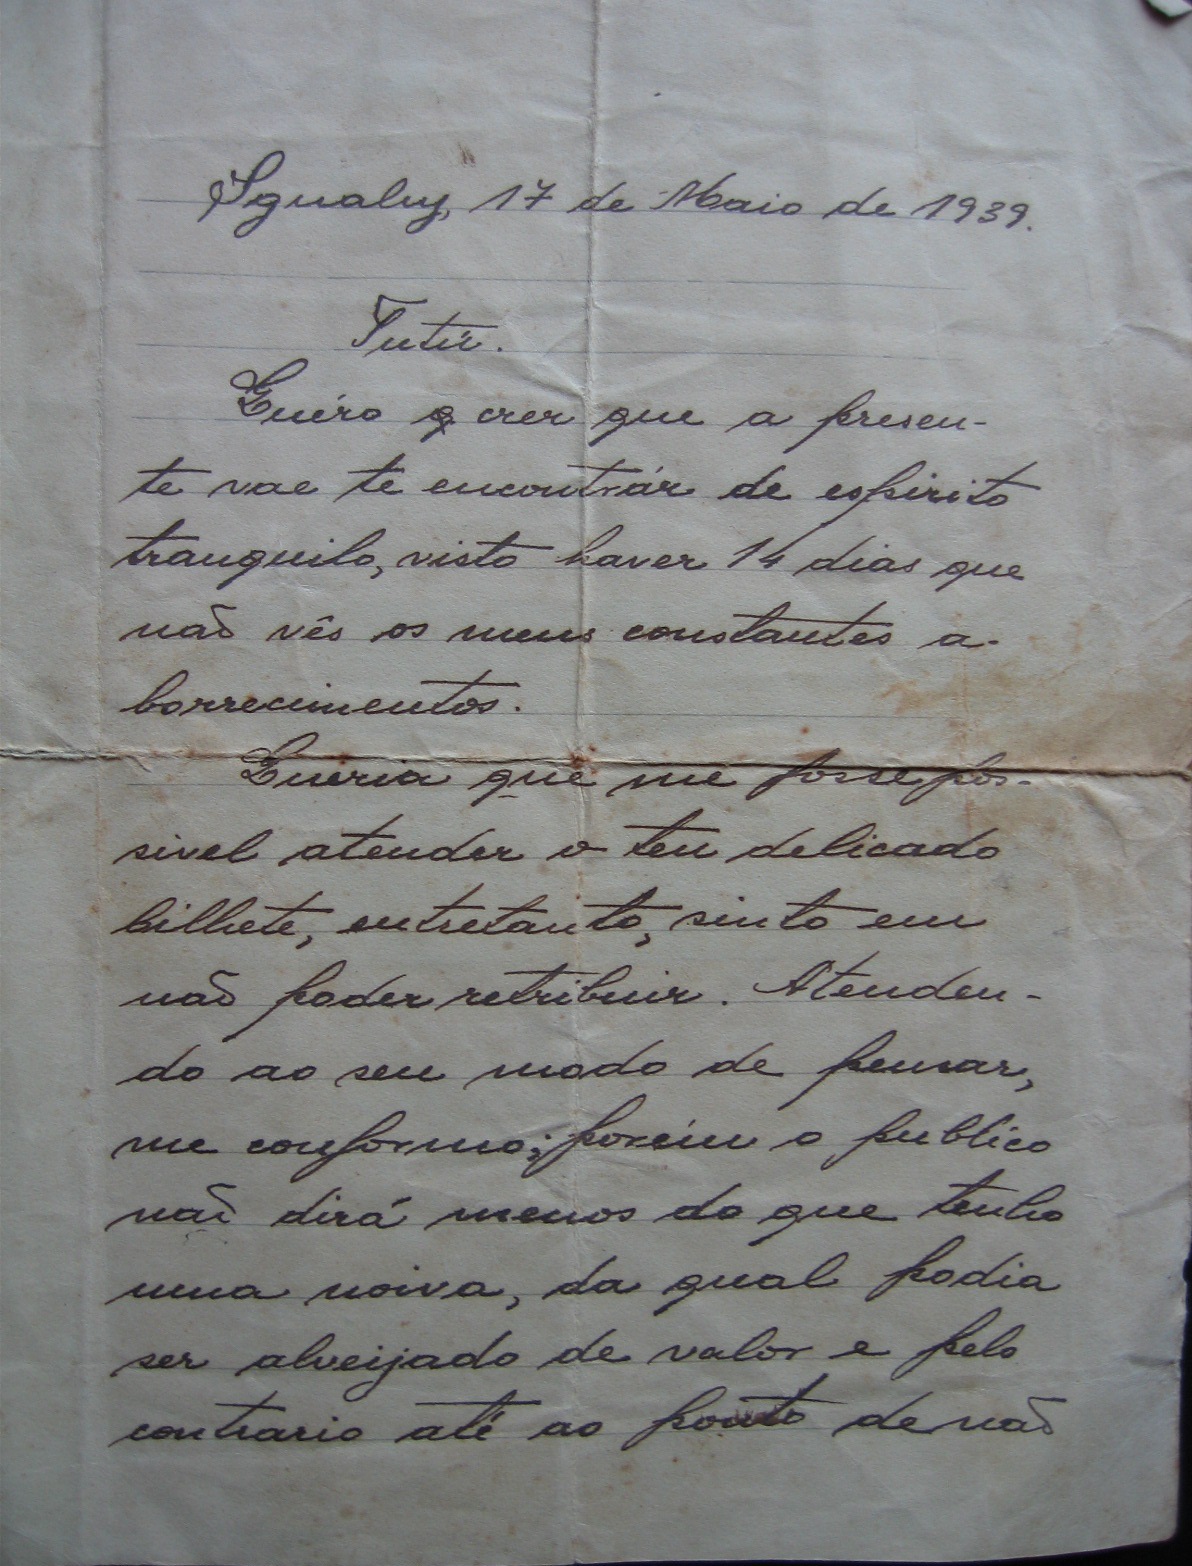 Igualuy, 17 de Maio de 1939.
Tutú.
Quéro q crer que a presen-
te vae te encontrár de espirito
tranquilo, visto haver 14 dias que
não vês os meus constantes a-
borrecimentos.
Queria que me fosse pos-
sivel atender o teu delicado
bilhete, entretanto, sinto em
não poder retribuir. Atenden-
do ao seu modo de pensar,
me conformo; porém o publico
não dirá menos do que tenho
uma noiva, da qual podia
ser alveijado de valor e pelo
contrario até ao ponto de não